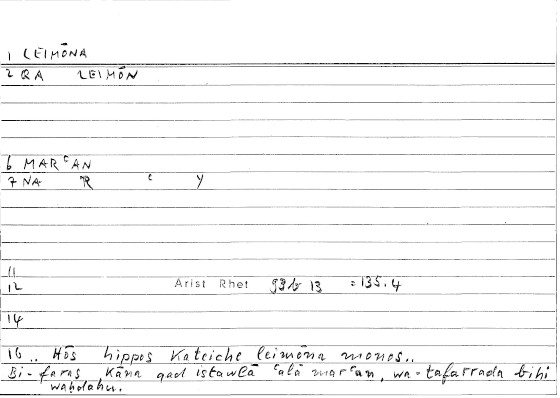 1 LEIMŌNA
2 QA LEIMŌN
6 MARʿAN
7 NA R ʿ Y
11
12 Arist Rhet 93b 13 = 135.4
14
16 .. Hōs hippos Kateiche leimōna monos..
Bi-faras Kāna qad istawlā ʿalā marʿan, wa-tafarrada bihi
waḥdahu.